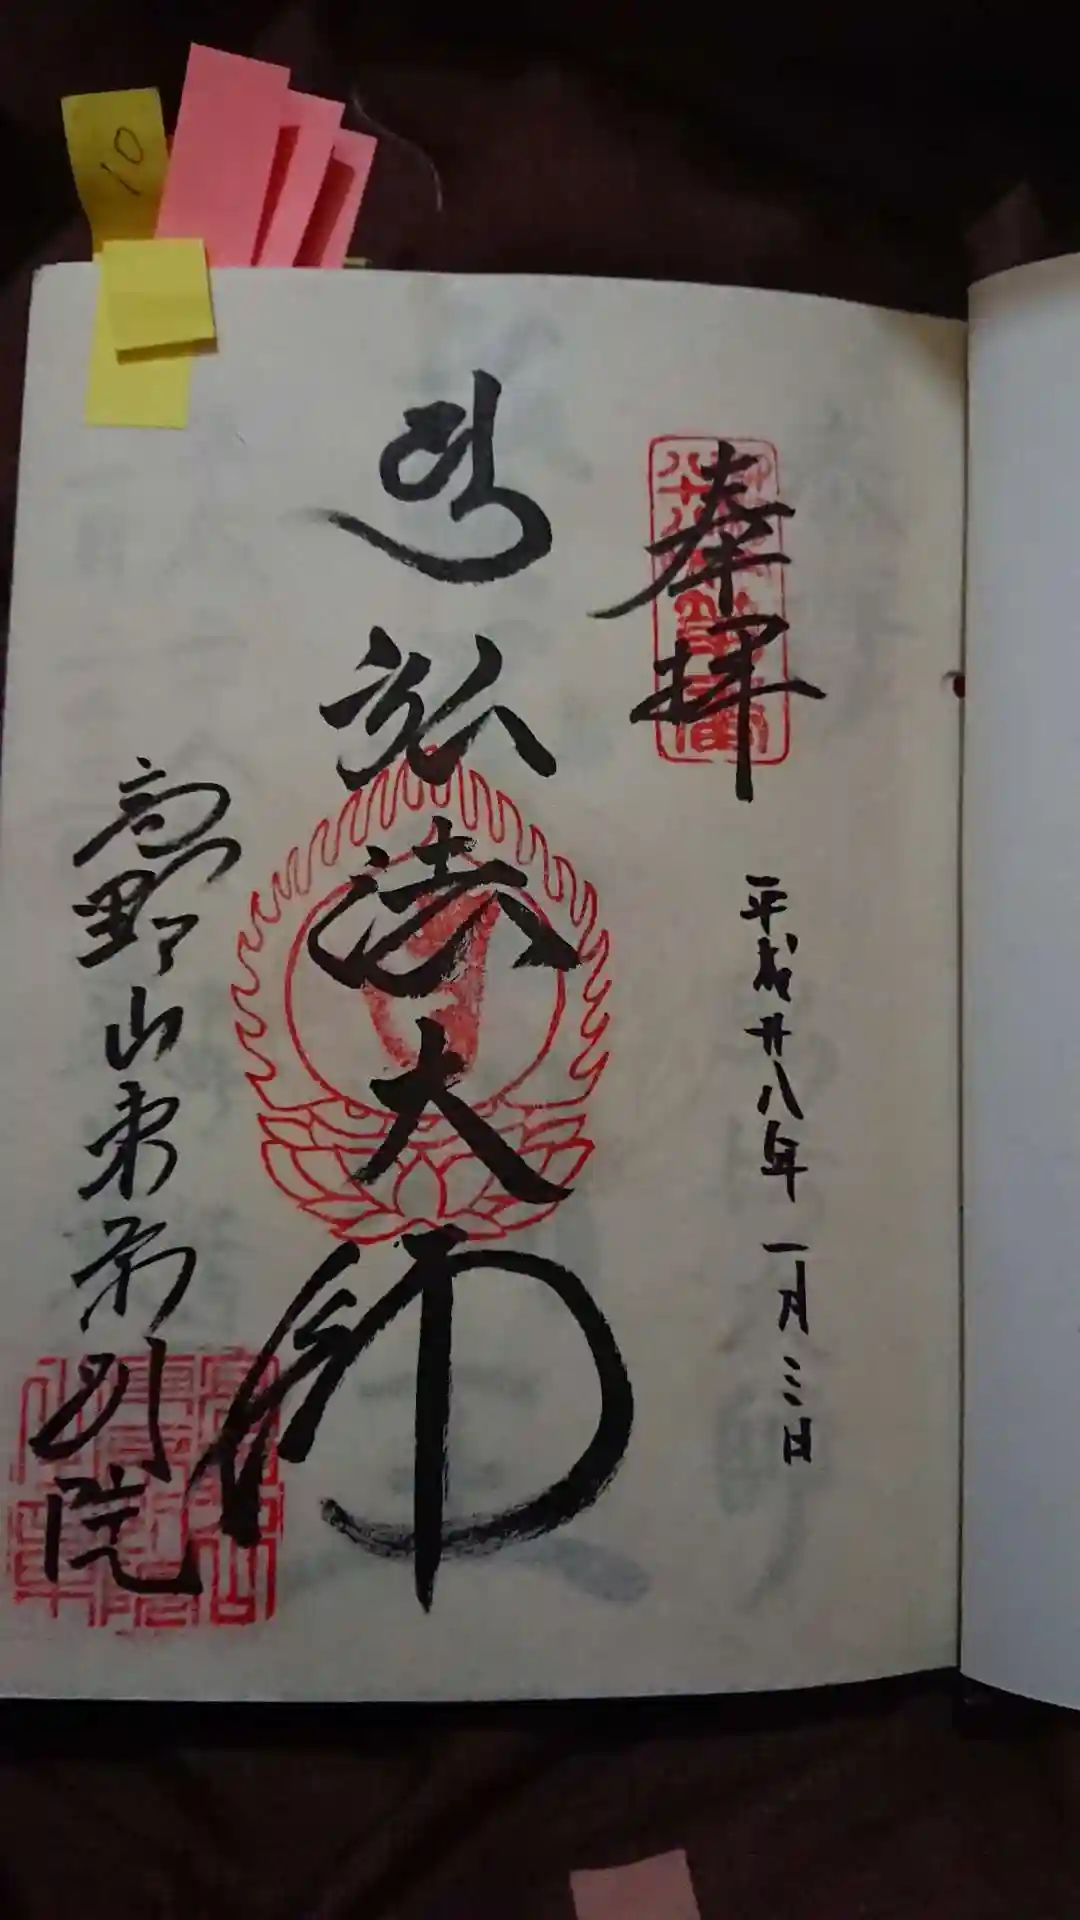 奉拝
平成廿八年 一月三日
弘法大師
高野山東京別院
10